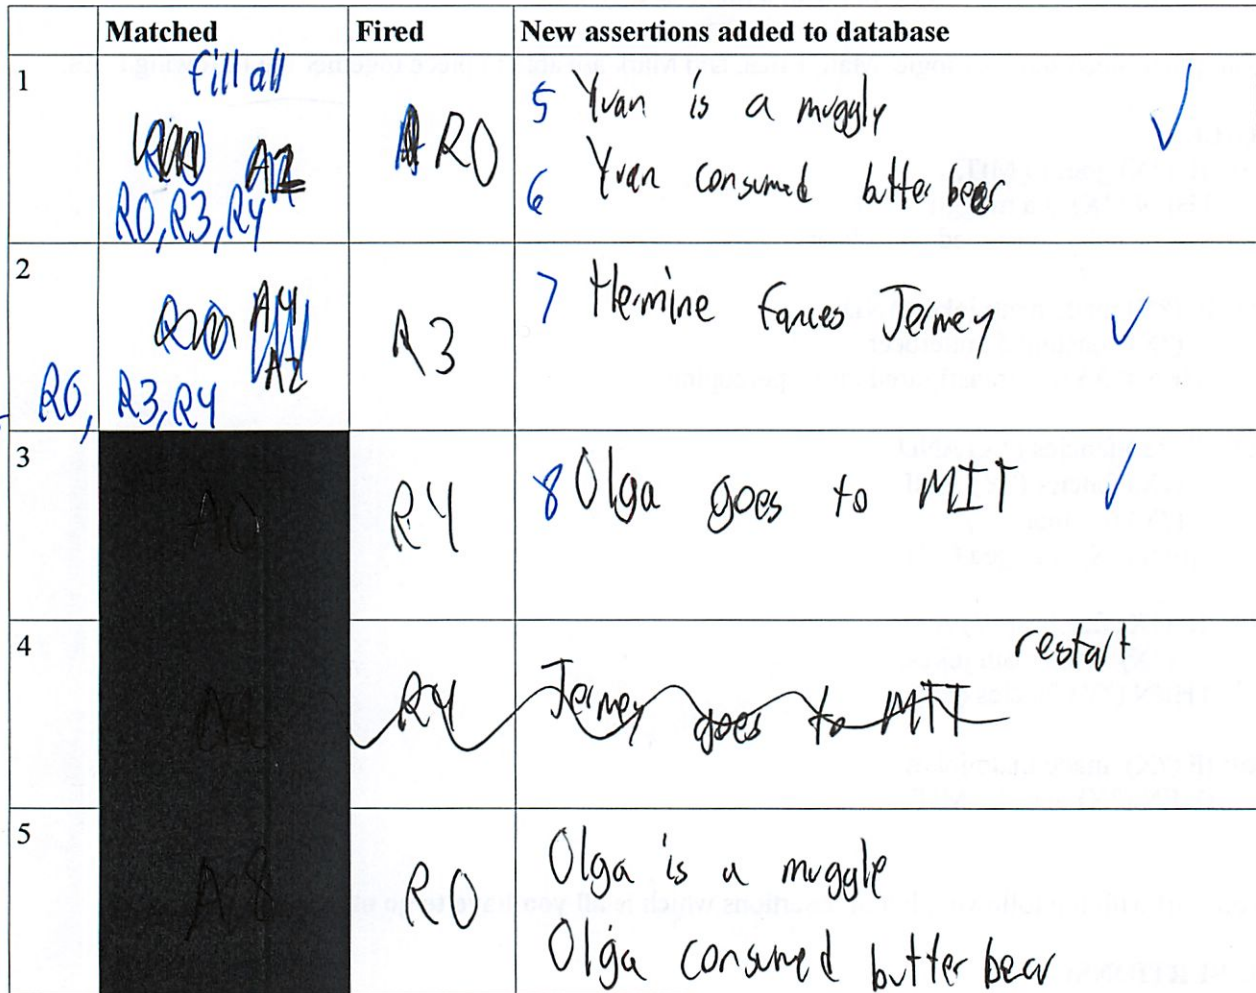 Matched Fired New assertions added to database
1 fill all
R0, R3, R4
R0
5 Yvan is a muggly
6 Yvan consumed butter bear
2
R0, R3, R4
R3
7 Hermine fances Jermey
3 R4 8 Olga goes to MIT
restart
4 R4 Jermey goes to MIT
5 A8 R0 Olga is a muggle
Olga consumed butter bear